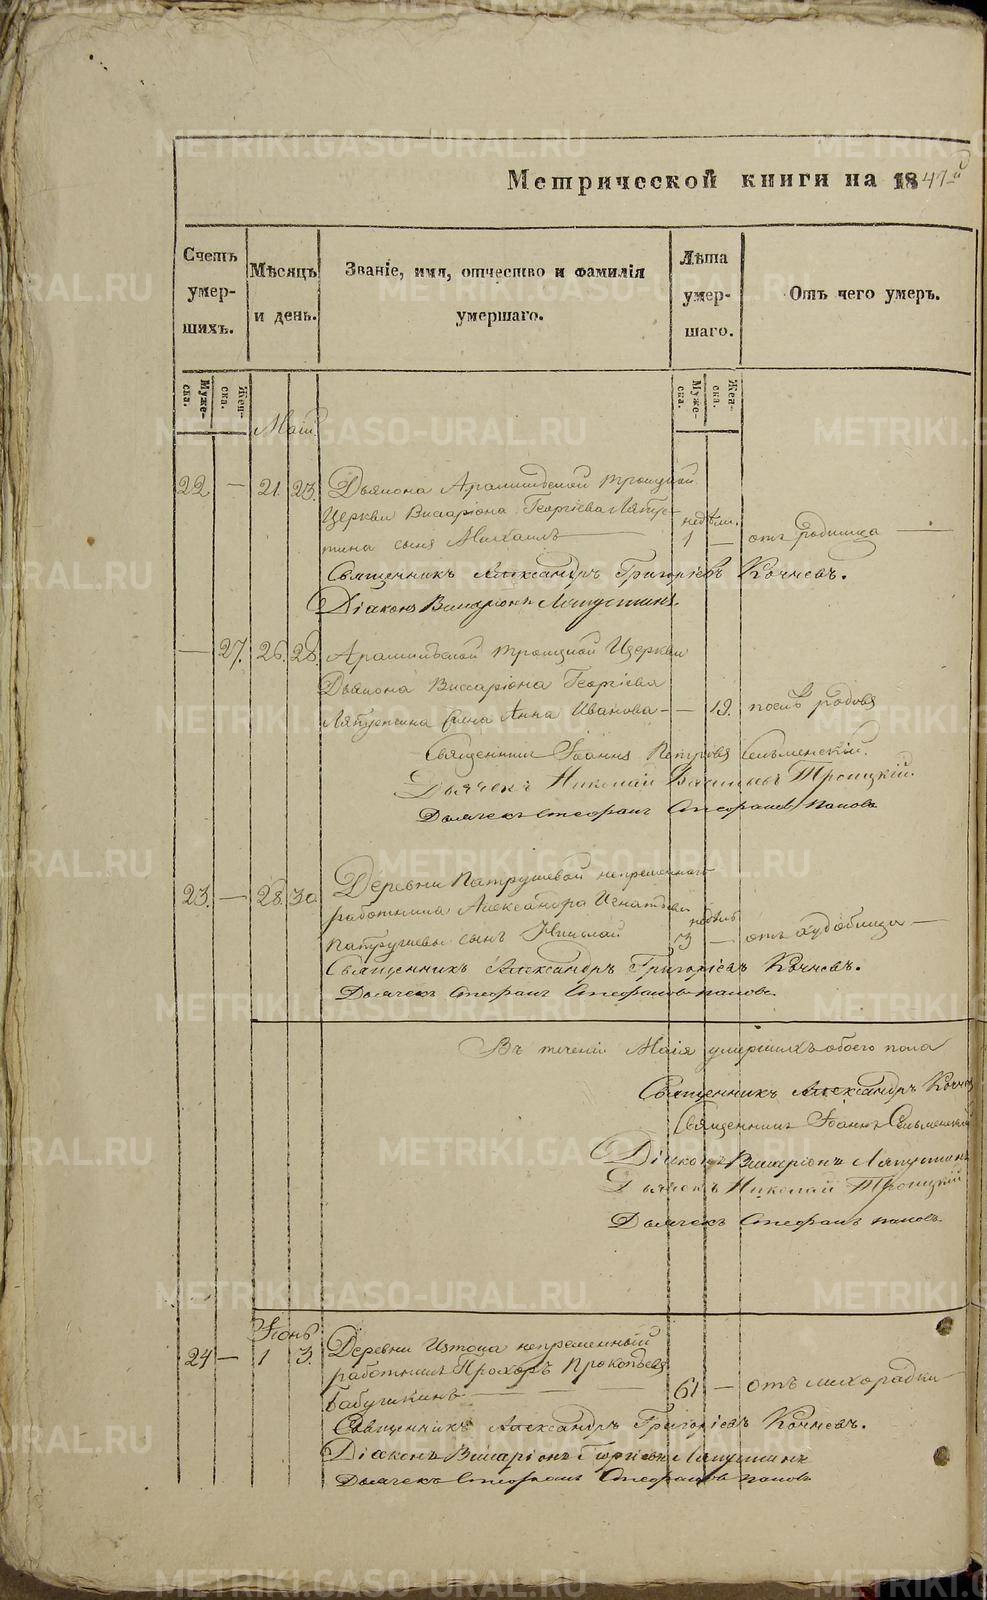 Метрической книги на 1847й
Счетъ умер- шихъ.
Мѣсяцъ и день.
Званіе, имя, отчество и фамилія умершаго.
Лѣта умер- шаго.
Отъ чего умеръ.
Муже- ска.
Жен- ска.
Муже- ска.
Жен- ска.
Маій
22 — 21. 23. Дьякона Арамильской Троицкой
Церкви Виссаріона Георгіева Ляпус-
недѣли.
тина сынъ Михаилъ 1 — отъ родимца
Священникъ Александръ Григоріевъ Кочневъ.
Діаконъ Виссаріонъ Ляпустинъ.
— 27. 26. 28 Арамильской Троицкой Церкви
Дьякона Виссаріона Георгіева
Ляпустина жена Анна Иванова — — 19. послѣ родовъ
Священникъ Іоаннъ Петровъ Сельменскій.
Дьячекъ Николай Троицкій.
Дьячекъ Стефанъ Стефановъ Поповъ
23. — 28. 30 Деревни Патрушевой непременнаго
работника Александра Игнатьева
недѣль
Патрушева сынъ Николай 3 — отъ худобища —
Священникъ Александръ Григоріевъ Кочневъ.
Дьячекъ Стефанъ Стефановъ Поповъ.
Въ теченіи Маія умершихъ обоего пола
Священникъ Александръ Кочнев
Священникъ Іоаннъ Сельменскій
Діаконъ Виссаріонъ Ляпустинъ
Дьячекъ Николай Троицкій
Дьячекъ Стефанъ Поповъ.
Іюнь
24 — 1 3. Деревни Истока непременный
работникъ Прохоръ Прокопьевъ
Бабушкинъ — — — 61 — отъ лихорадки
Священникъ Александръ Григоріевъ Кочневъ.
Діаконъ Виссаріонъ Георгіевъ Ляпустинъ
Дьячекъ Стефанъ Стефановъ Поповъ
METRIKI.GASO-URAL.RU